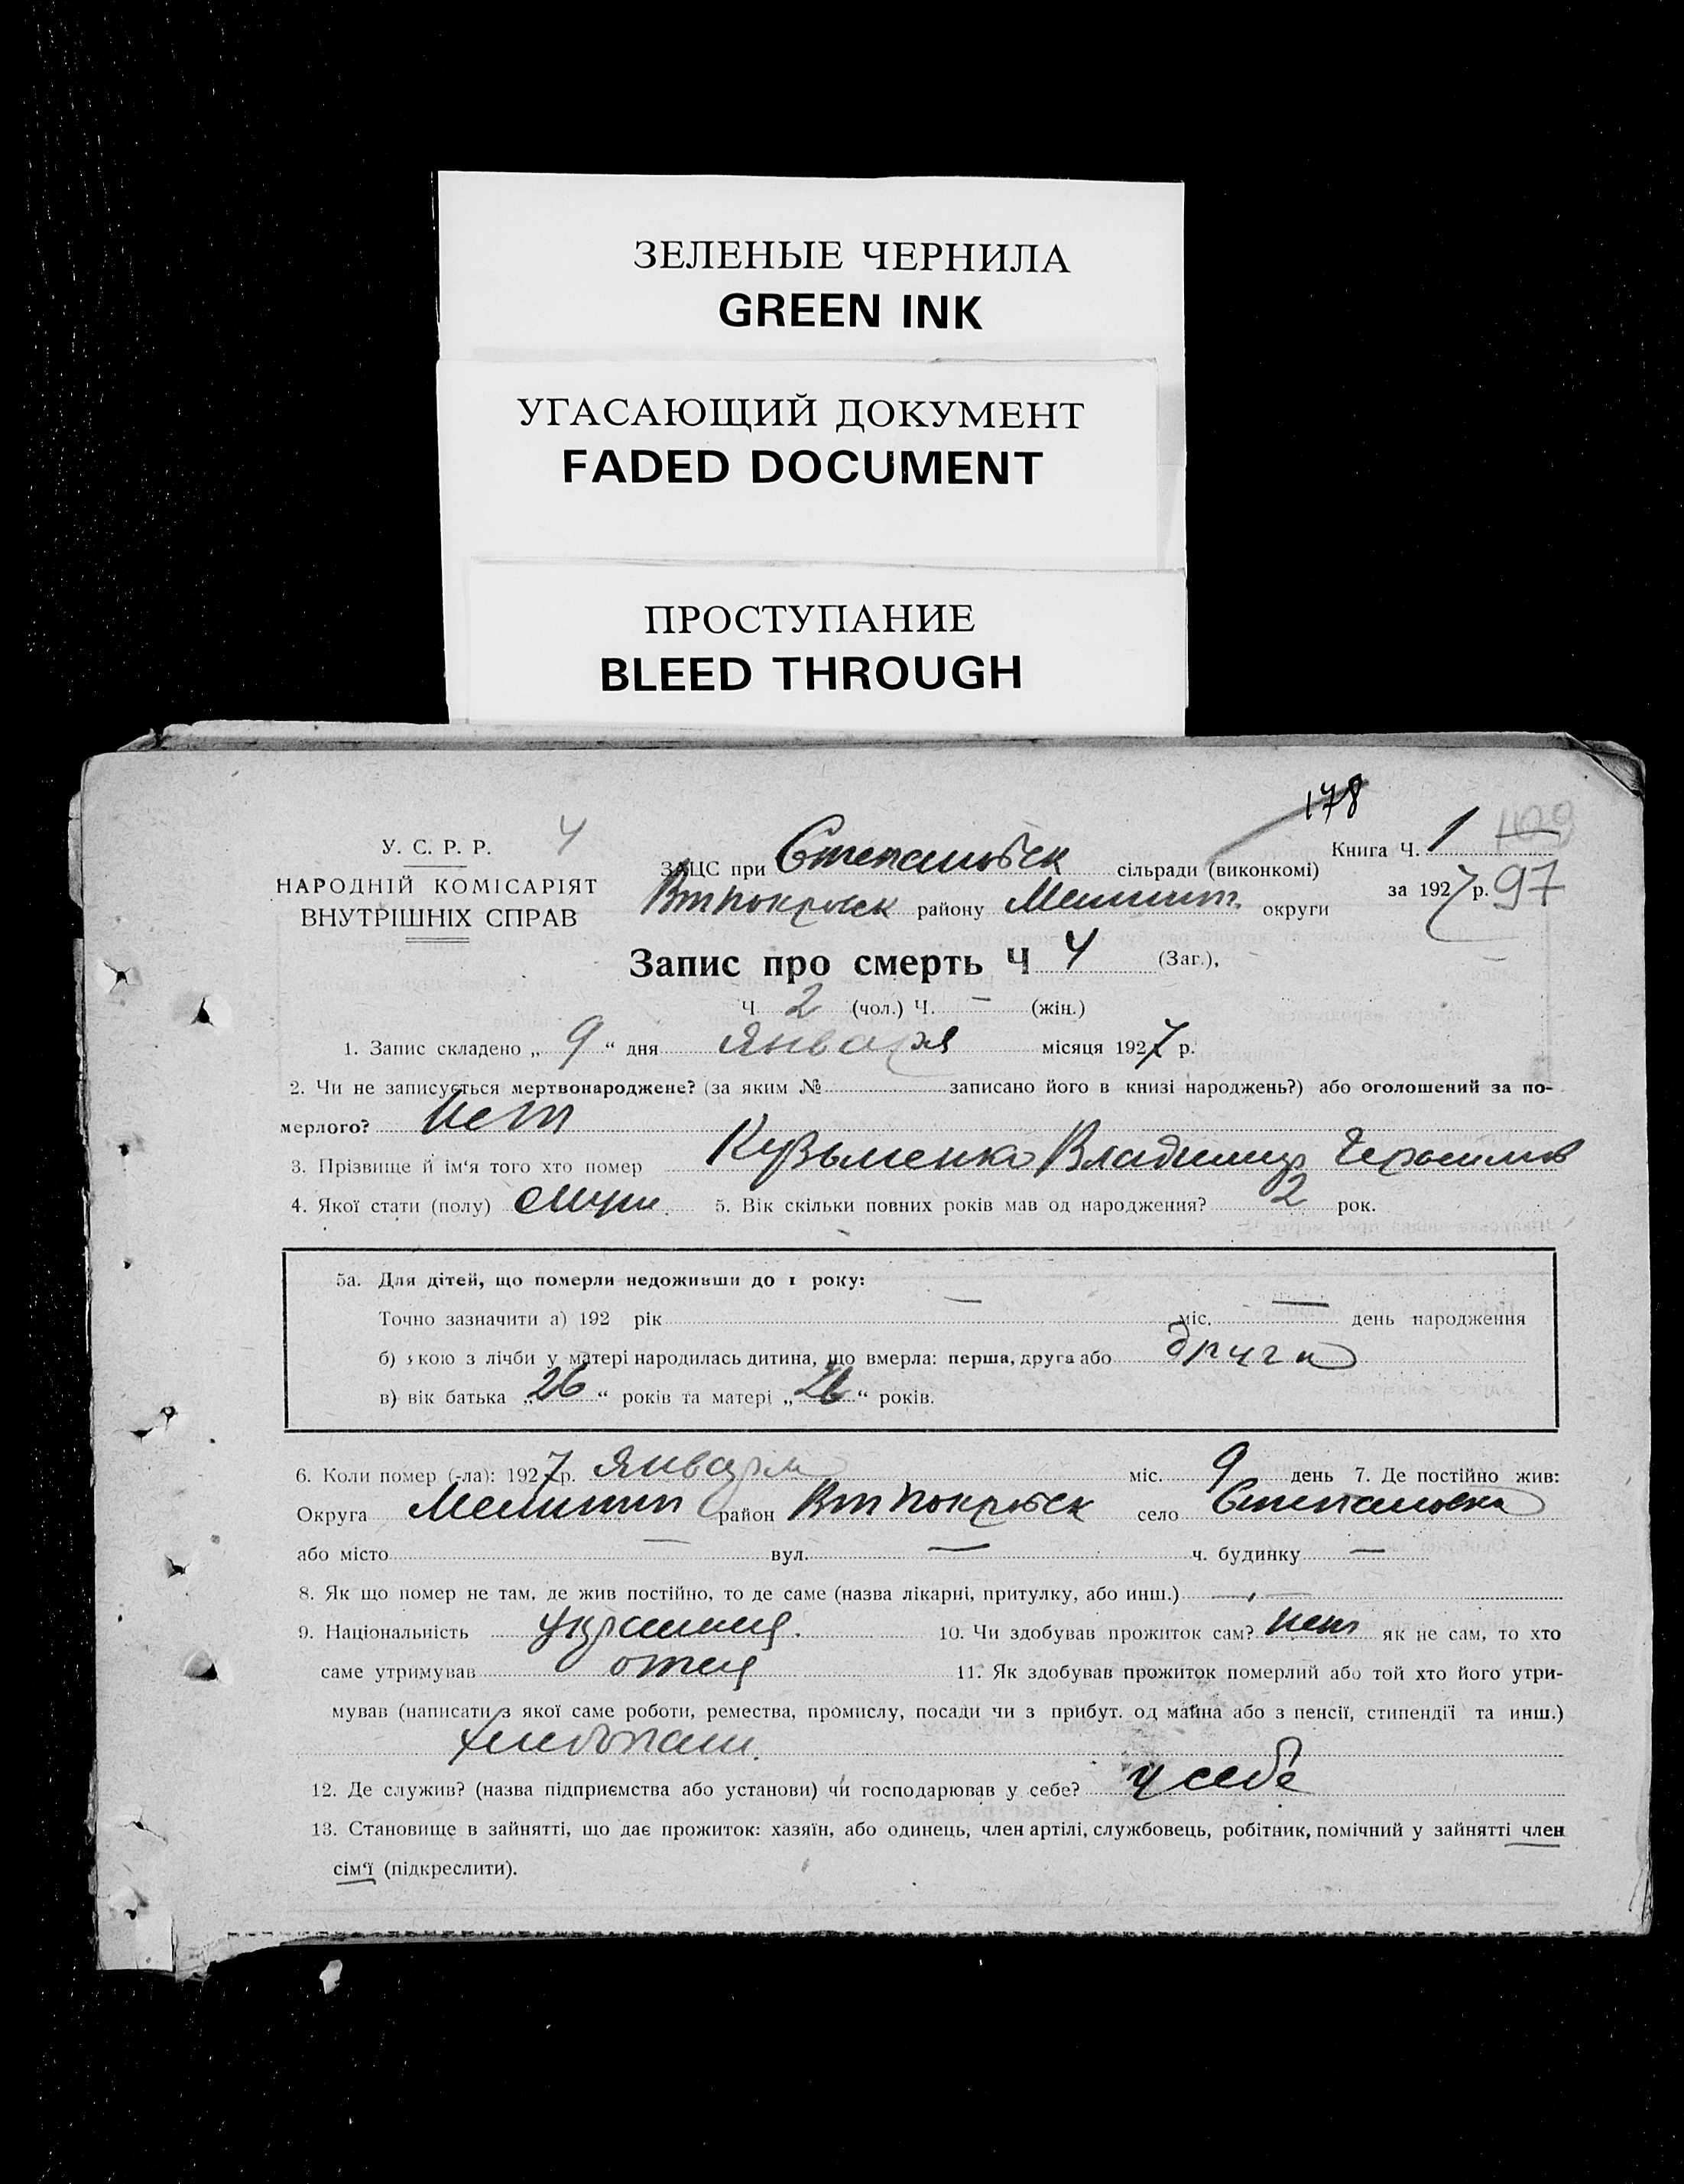 ЗЕЛЕНЫЕ ЧЕРНИЛА
GREEN INK
УГАСАЮЩИЙ ДОКУМЕНТ
FADED DOCUMENT
ПРОСТУПАНИЕ
BLEED THROUGH
178
У. С. Р. Р. 4
ЗАЦС при Степановск сільради (виконкомі) Книга Ч. 1
НАРОДНІЙ КОМІСАРІЯТ
Втпокровск району Мелитоп. округи за 1927 р. 97
ВНУТРІШНІХ СПРАВ
Запис про смерть Ч 4 (Заг.),
Ч 2 (чол.) Ч. — (жін.)
1. Запис складено „ 9 “ дня Января місяця 1927 р.
2. Чи не записується мертвонароджене? (за яким № записано його в книзі народжень?) або оголошений за по-
мерлого? нет
3. Прізвище й ім‘я того хто помер Кузьменко Владимир Герасимов
4. Якої стати (полу) муж. 5. Вік скільки повних років мав од народження? 2 рок.
5а. Для дітей, що померли недоживши до 1 року:
Точно зазначити а) 192 рік — міс. — день народження
б) якою з лічби у матері народилась дитина, що вмерла: перша, друга або друга
в) вік батька „ 26 “ років та матері „ 26 “ років.
6. Коли помер (-ла): 1927 р. Января міс. 9 день 7. Де постійно жив:
Округа Мелитоп район Втпокровск село Степановка
або місто — вул. — ч. будинку —
8. Як що помер не там, де жив постійно, то де саме (назва лікарні, притулку, або инш.) —
9. Національність украинец. 10. Чи здобував прожиток сам? нет як не сам, то хто
саме утримував отец 11. Як здобував прожиток померлий або той хто його утри-
мував (написати з якої саме роботи, ремества, промислу, посади чи з прибут. од майна або з пенсії, стипендії та инш.)
хлебопаш.
12. Де служив? (назва підприємства або установи) чи господарював у себе? у себе
13. Становище в зайнятті, що дає прожиток: хазяїн, або одинець, член артілі, службовець, робітник, помічний у зайнятті член
сім‘ї (підкреслити).